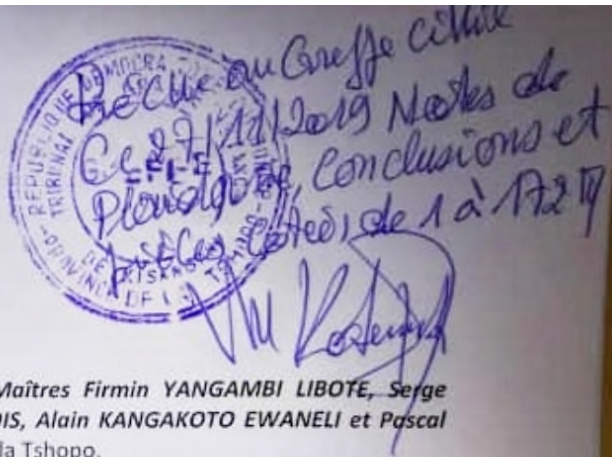 Reçue au Greffe civile
Ce 27/11/2019 Notes de
Plaidoirie, Conclusions et
pièces cotées de 1 à 172
REPUBLIQUE DEMOCRA
TRIBUNAL
GREFFE
DE KISANGANI
PROVINCE DE LA TSHOPO
Maîtres Firmin YANGAMBI LIBOTE, Serge
DIS, Alain KANGAKOTO EWANELI et Pascal
la Tshopo.